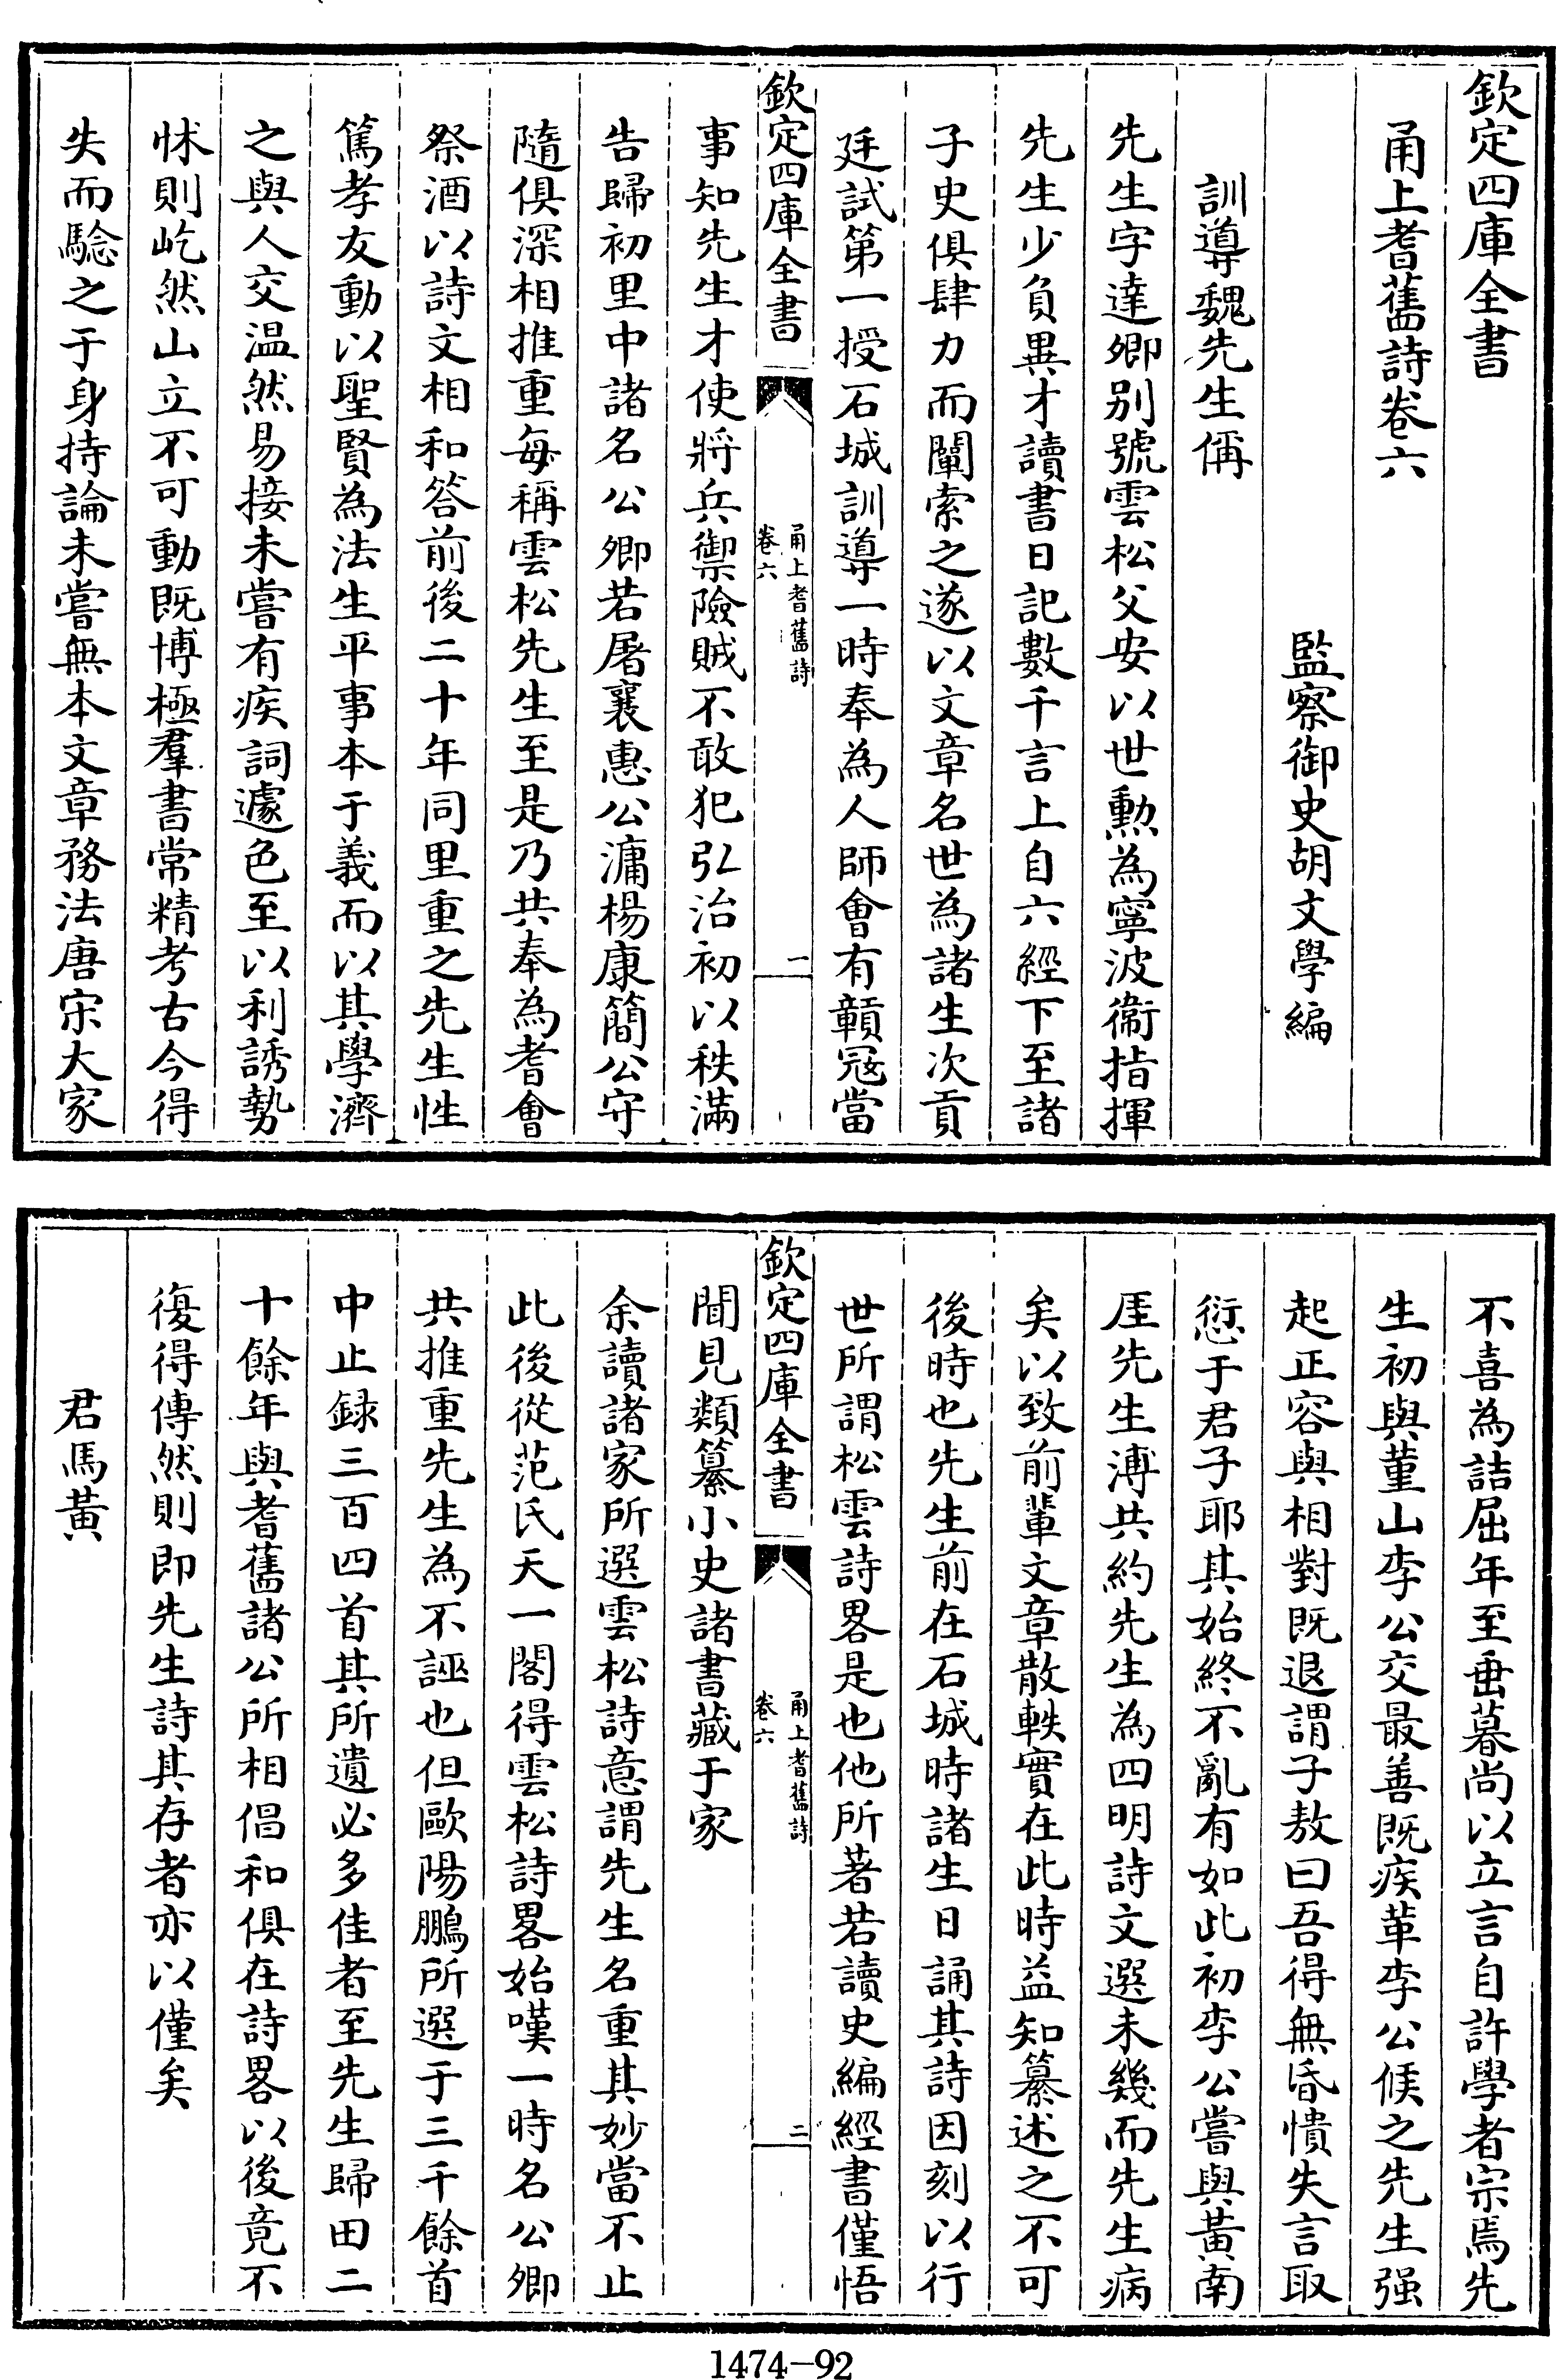 欽定四庫全書
甬上耆舊詩卷六
監察御史胡文學編
訓導魏先生偁
先生字達卿别號雲松父安以世勲為寧波衞指揮
先生少負異才讀書日記數千言上自六經下至諸
子史俱肆力而闡索之遂以文章名世為諸生次貢
廷試第一授石城訓導一時奉為人師會有贛冦當
欽定四庫全書
甬上耆舊詩
卷六
一
事知先生才使將兵禦險賊不敢犯弘治初以秩滿
告歸初里中諸名公卿若屠襄惠公滽楊康簡公守
隨俱深相推重每稱雲松先生至是乃共奉為耆會
祭酒以詩文相和答前後二十年同里重之先生性
篤孝友動以聖賢為法生平事本于義而以其學濟
之與人交温然易接未嘗有疾詞遽色至以利誘勢
怵則屹然山立不可動既博極羣書常精考古今得
失而騐之于身持論未嘗無本文章務法唐宋大家
不喜為詰屈年至垂暮尚以立言自許學者宗焉先
生初與董山李公交最善既疾革李公候之先生强
起正容與相對既退謂子敖曰吾得無昏憒失言取
愆于君子耶其始終不亂有如此初李公嘗與黃南
厓先生溥共約先生為四明詩文選未幾而先生病
矣以致前輩文章散軼實在此時益知纂述之不可
後時也先生前在石城時諸生日誦其詩因刻以行
世所謂松雲詩畧是也他所著若讀史編經書僅悟
欽定四庫全書
甬上耆舊詩
卷六
二
聞見類纂小史諸書藏于家
余讀諸家所選雲松詩意謂先生名重其妙當不止
此後從范氏天一閣得雲松詩畧始嘆一時名公卿
共推重先生為不誣也但歐陽鵬所選于三千餘首
中止録三百四首其所遺必多佳者至先生歸田二
十餘年與耆舊諸公所相倡和俱在詩畧以後竟不
復得傳然則即先生詩其存者亦以僅矣
君馬黃
1474—92